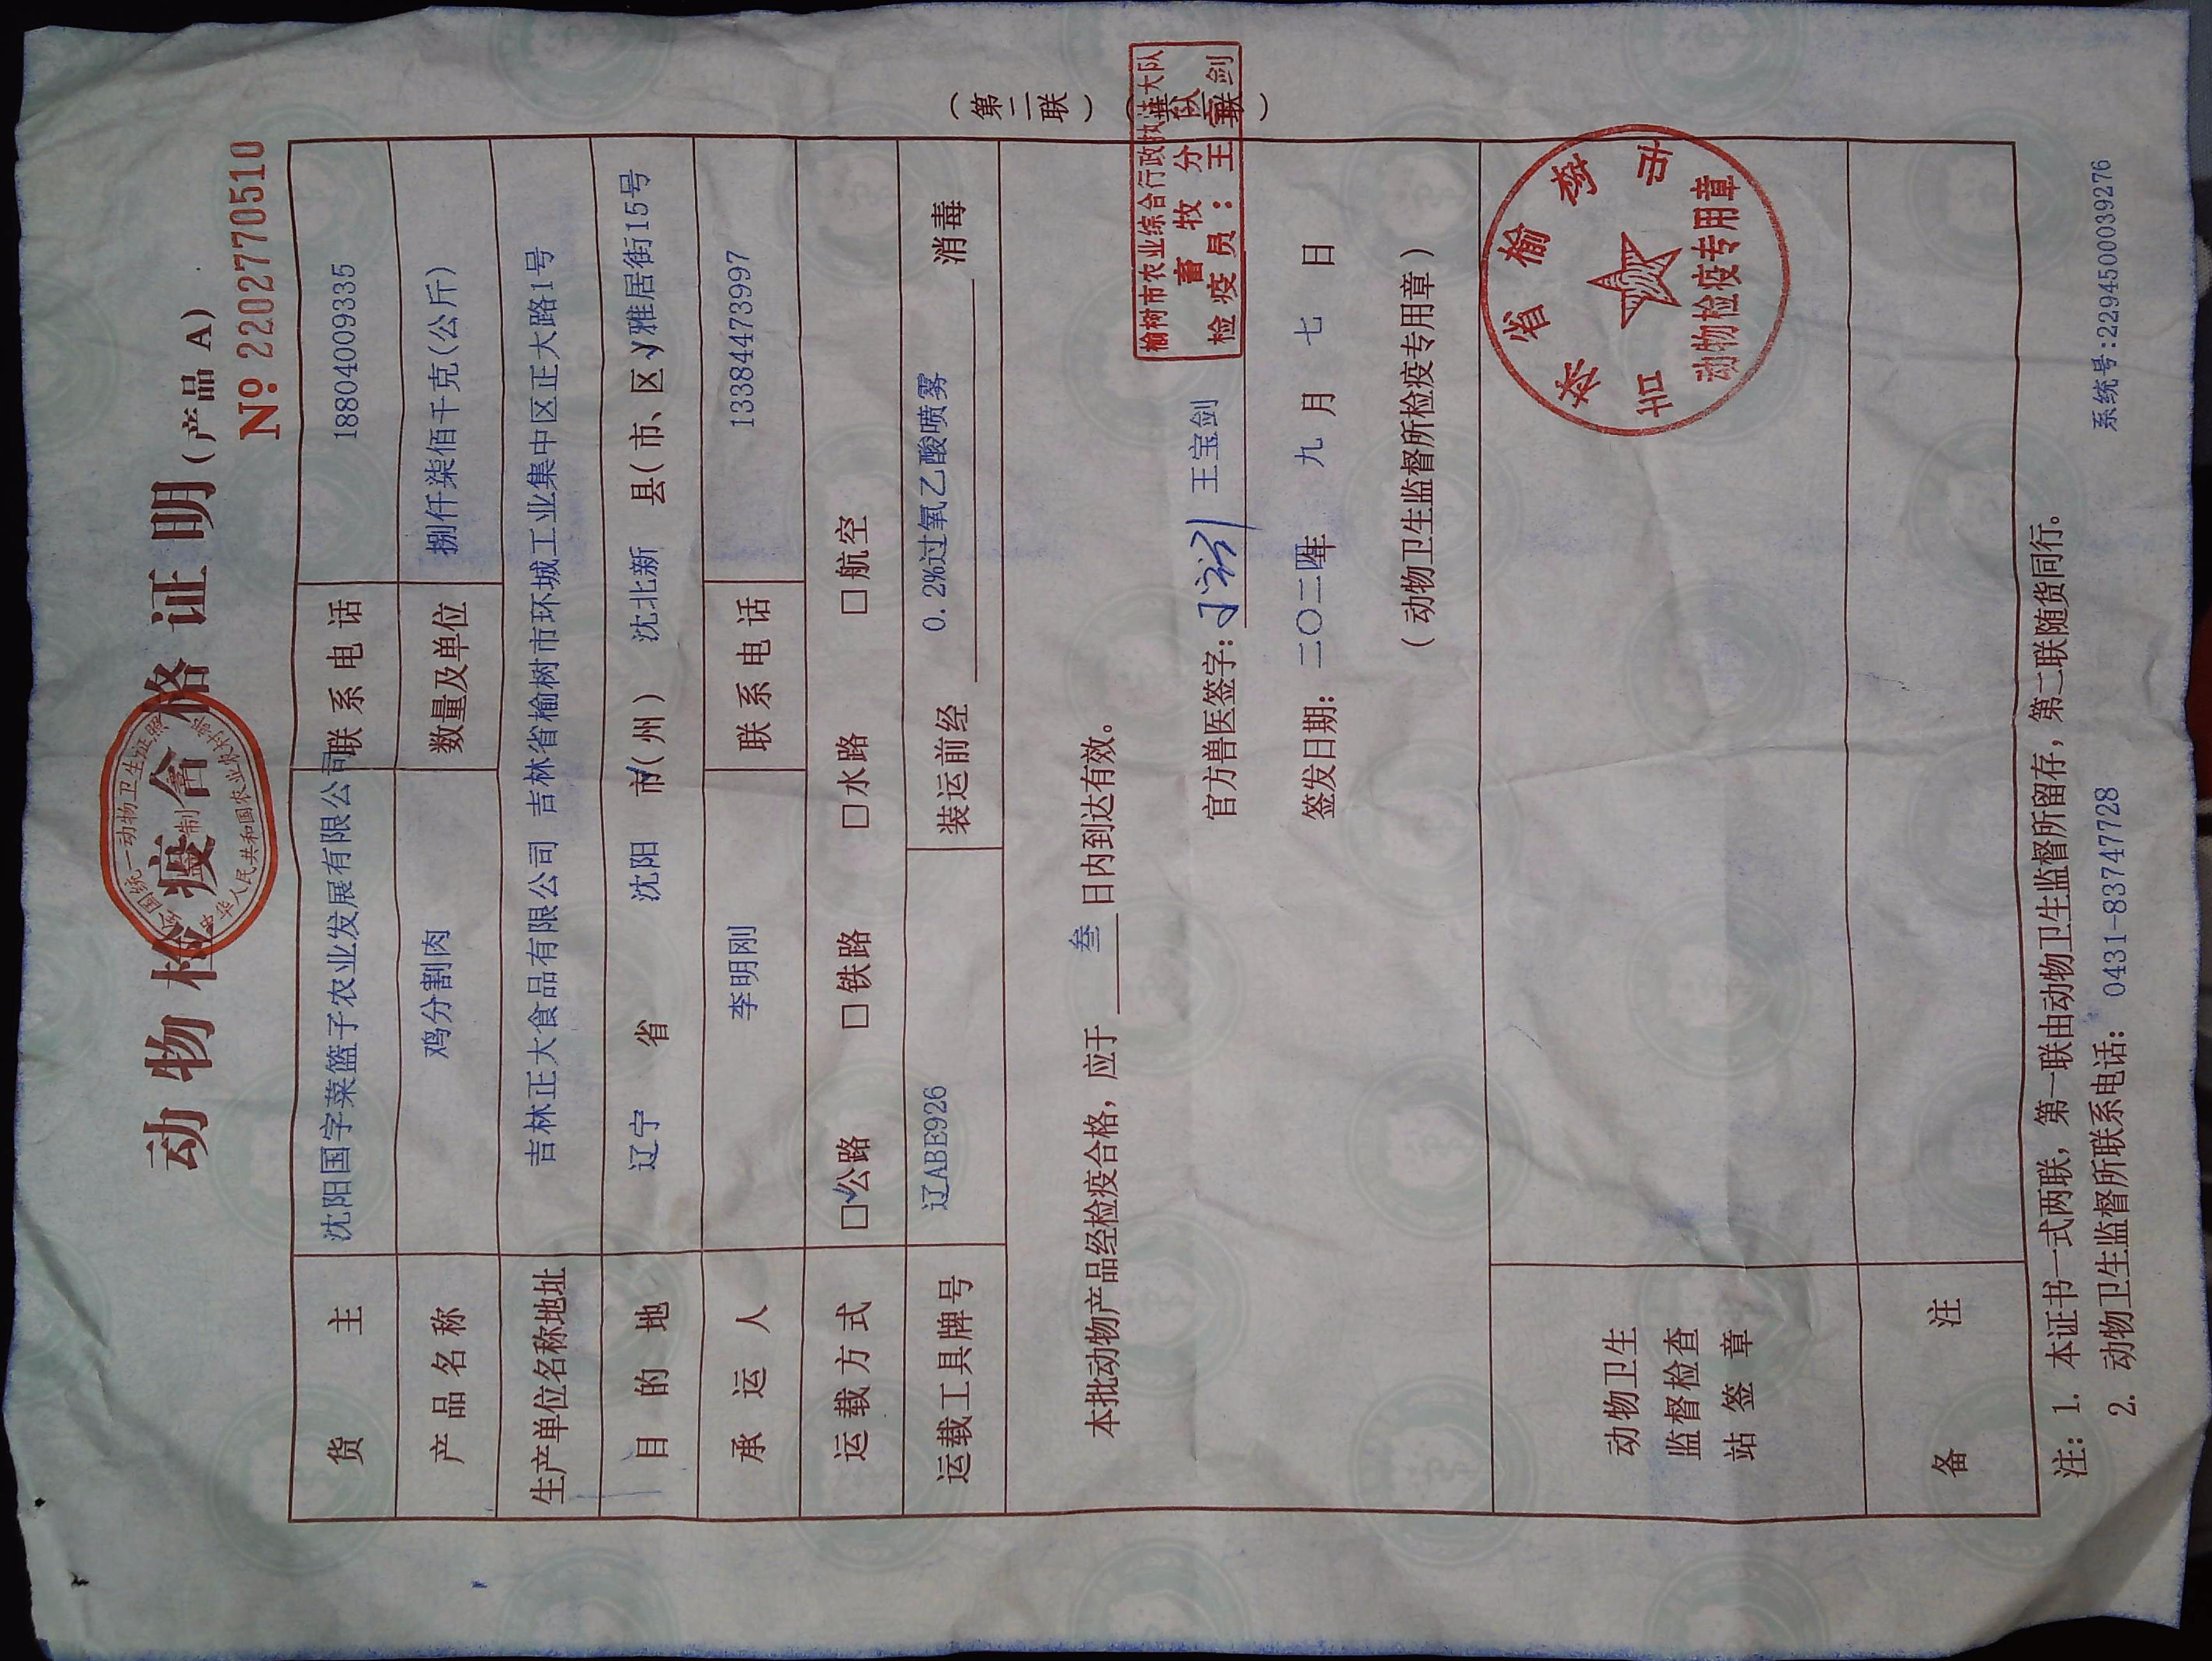 动物检疫合格证明(产品 A)
№ 2202770510
货主 沈阳国字菜篮子农业发展有限公司 联系电话 18804009335
产品名称 鸡分割肉 数量及单位 捌仟柒佰千克(公斤)
生产单位名称地址 吉林正大食品有限公司 吉林省榆树市环城工业集中区正大路1号
目的地 辽宁 省 沈阳 市(州) 沈北新 县(市、区) 雅居街15号
承运人 李明刚 联系电话 13384473997
运载方式 ☑公路 □铁路 □水路 □航空
运载工具牌号 辽ABE926 装运前经 0.2%过氧乙酸喷雾 消毒
本批动物产品经检疫合格，应于 叁 日内到达有效。
官方兽医签字: 王宝剑
榆树市农业综合行政执法大队
畜牧分队
检疫员：王宝剑
签发日期: 二〇二四年 九 月 七 日
(动物卫生监督所检疫专用章)
动物检疫专用章
动物卫生
监督检查
站签章
备注
(第二联)
注: 1. 本证书一式两联，第一联由动物卫生监督所留存，第二联随货同行。
2. 动物卫生监督所联系电话: 0431-83747728
系统号:22945000039276